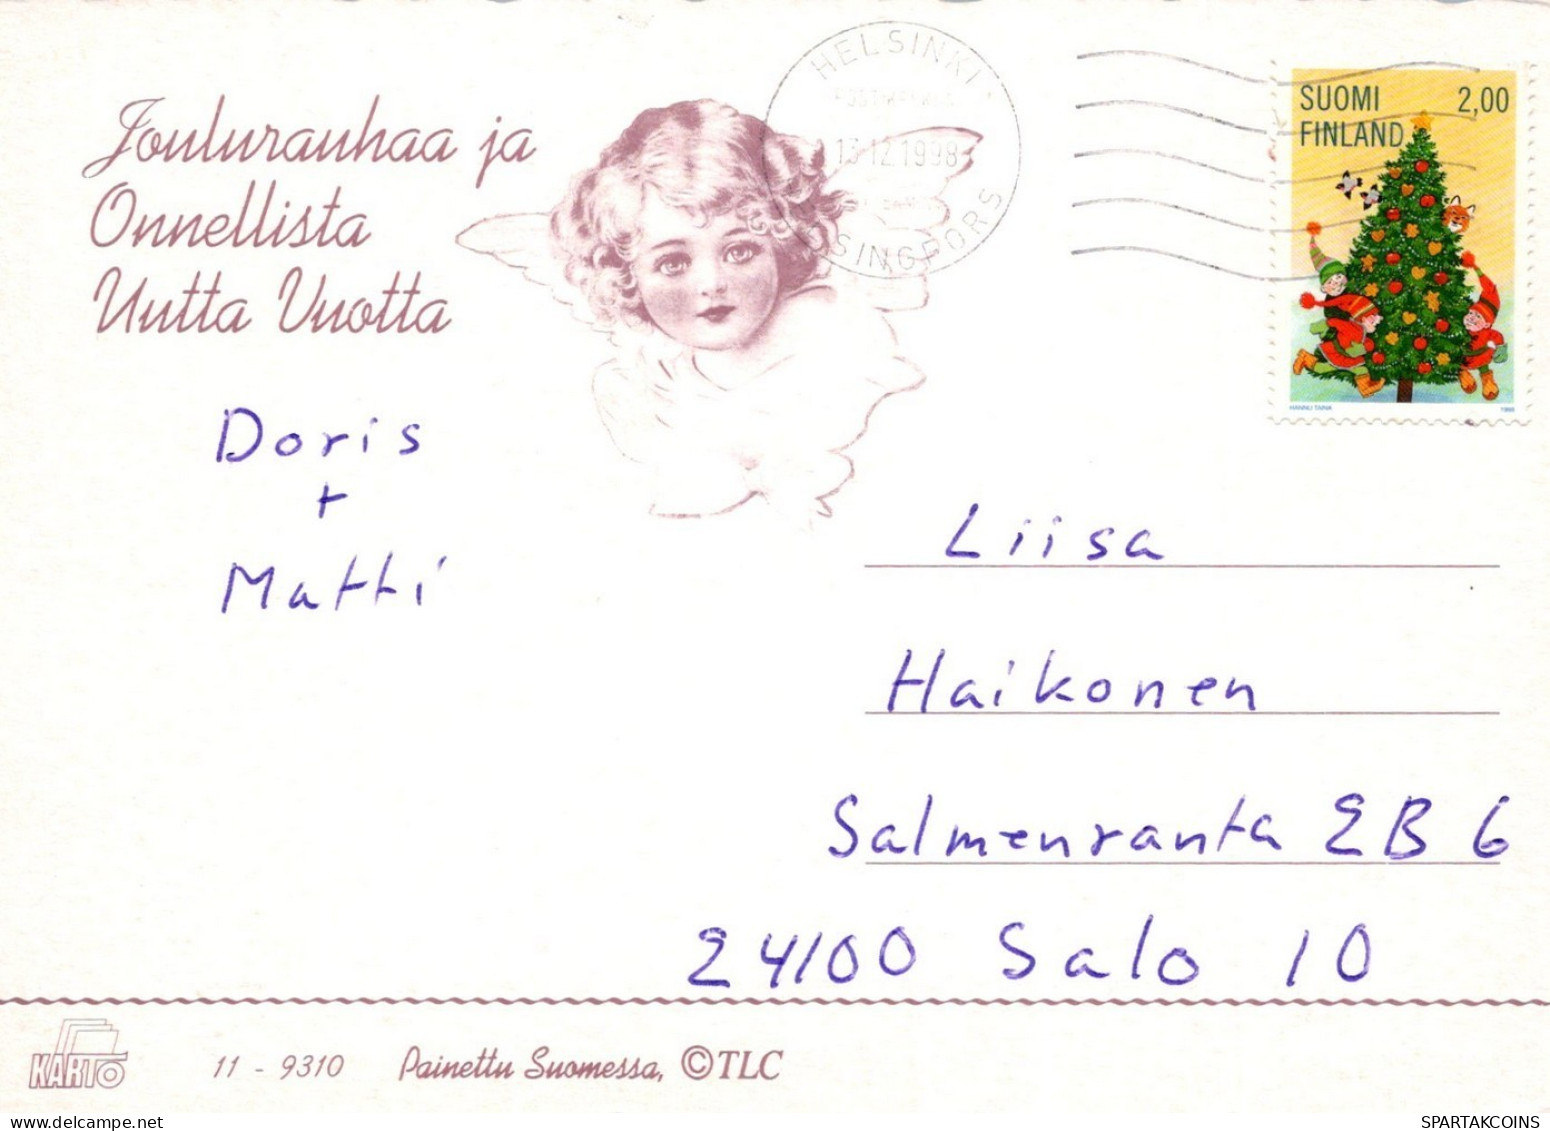 Joulurauhaa ja
Onnellista
Uutta Vuotta
HELSINKI
13.12.1998
HELSINGFORS
SUOMI 2,00
FINLAND
HANNU TAINA 1998
Doris
+
Matti
Liisa
Haikonen
Salmenranta 2 B 6
24100 Salo 10
KARTO
11 - 9310 Painettu Suomessa, ©TLC
SPARTAKCOINS
delcampe.net